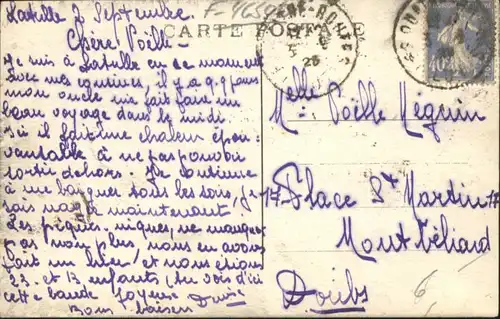 2 Septembre.
CARTE POSTALE
Chère Poëlle
Je suis à en ce moment
avec mes cousines, il y a q.q jours
mon oncle me fait faire un
beau voyage dans le midi
Ici il fait une chaleur épou-
vantable à ne pas pouvoir
sortir dehors. Je continue
à me baigner tous les soirs, je
sais nager maintenant
Les piques niques, ne manquent
pas non plus, nous en avons
fait un hier et nous étions
23. et 13 enfants, tu vois d'ici
cette bande joyeuse
Bons baisers
Melle
Melle Poëlle Méquin
17 Place St Martin 17
Montbéliard
Doubs
6